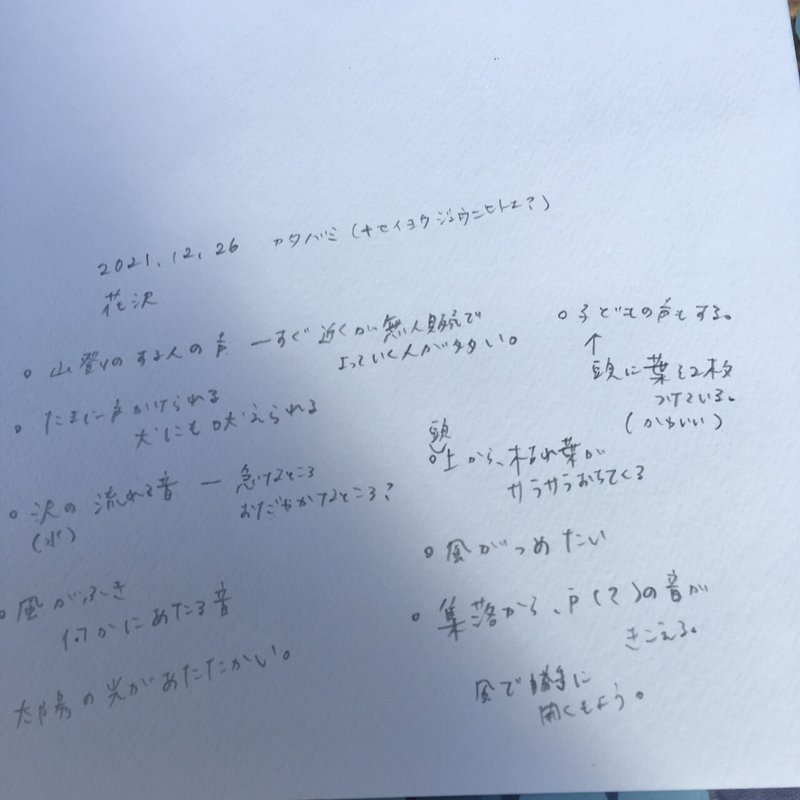 2021.12.26 カタバミ(ナセイヨウジュウニヒトエ?)
花沢
○ 山登りのする人の声 ーすぐ近くが無人販売で
よっていく人が多い。
○ たまに声かけられる
犬にも吠えられる
○ 沢の流れる音 ー 急なところ
(水)
おだやかなところ?
○ 風がふき
何かにあたる音
太陽の光があたたかい。
○ 子どもの声もする。
↑
頭に葉を2枚
つけている。
(かわいい)
頭
○上から、枯れ葉が
サラサラおちてくる
○ 風がつめたい
○ 集落から、戸(?)の音が
きこえる。
風で勝手に
開くもよう。